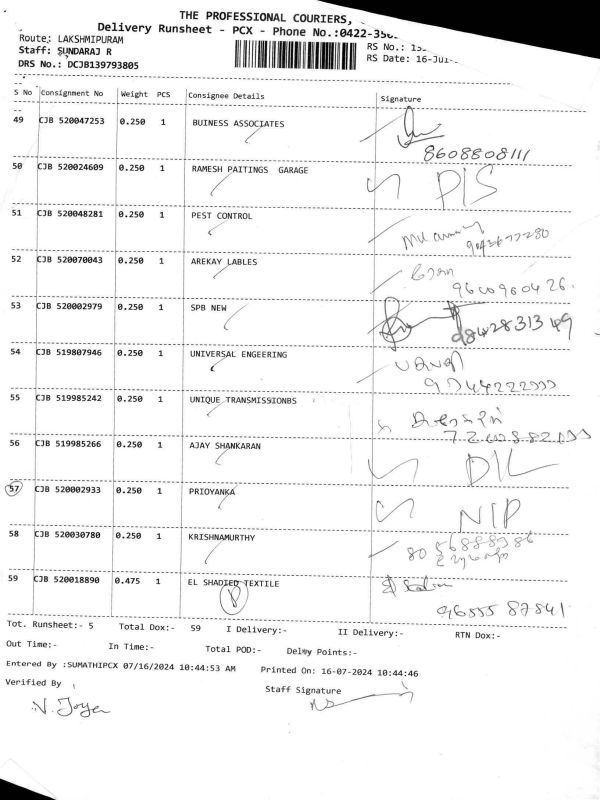 THE PROFESSIONAL COURIERS,
Delivery Runsheet - PCX - Phone No.:0422-350
Route: LAKSHMIPURAM
Staff: SUNDARAJ R
RS No.:
DRS No.: DCJB139793805
RS Date: 16-Jul-
S No Consignment No Weight PCS Consignee Details Signature
49 CJB 520047253 0.250 1 BUINESS ASSOCIATES
8608808111
50 CJB 520024609 0.250 1 RAMESH PAITINGS GARAGE PIS
51 CJB 520048281 0.250 1 PEST CONTROL
52 CJB 520070043 0.250 1 AREKAY LABLES
9600960426.
53 CJB 520002979 0.250 1 SPB NEW
9842831349
54 CJB 519807946 0.250 1 UNIVERSAL ENGEERING
55 CJB 519985242 0.250 1 UNIQUE TRANSMISSIONBS
56 CJB 519985266 0.250 1 AJAY SHANKARAN DIL
57 CJB 520002933 0.250 1 PRIOYANKA NIP
58 CJB 520030780 0.250 1 KRISHNAMURTHY
59 CJB 520018890 0.475 1 EL SHADIED TEXTILE
P
96555 87841
Tot. Runsheet:- 5 Total Dox:- 59 I Delivery:- II Delivery:- RTN Dox:-
Out Time:- In Time:- Total POD:- Delay Points:-
Entered By :SUMATHIPCX 07/16/2024 10:44:53 AM Printed On: 16-07-2024 10:44:46
Verified By Staff Signature
N. Joyer